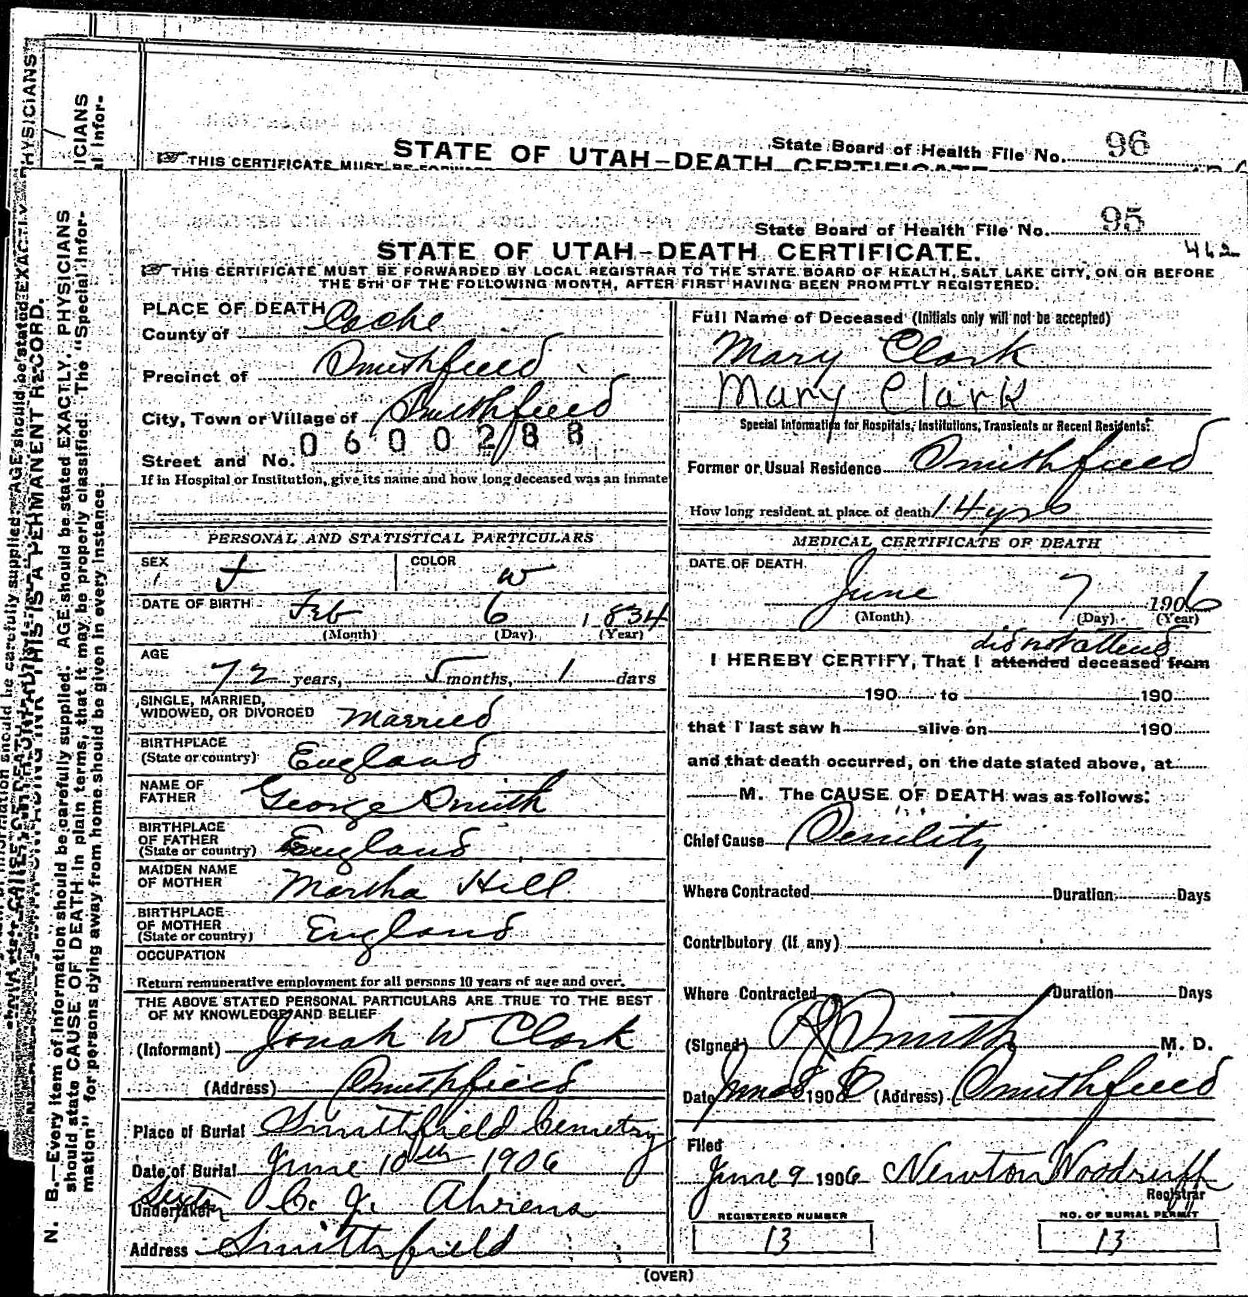 State Board of Health File No. 96
STATE OF UTAH—DEATH CERTIFICATE
THIS CERTIFICATE MUST BE FORWARDED
State Board of Health File No. 95
STATE OF UTAH—DEATH CERTIFICATE.
462
THIS CERTIFICATE MUST BE FORWARDED BY LOCAL REGISTRAR TO THE STATE BOARD OF HEALTH, SALT LAKE CITY, ON OR BEFORE
THE 5TH OF THE FOLLOWING MONTH, AFTER FIRST HAVING BEEN PROMPTLY REGISTERED.
PLACE OF DEATH
County of Cache
Precinct of Smithfield
City, Town or Village of Smithfield
0600288
Street and No.
If in Hospital or Institution, give its name and how long deceased was an inmate
PERSONAL AND STATISTICAL PARTICULARS
SEX f COLOR w
DATE OF BIRTH Feb 6 1834
(Month) (Day) (Year)
AGE
72 years, 5 months, 1 days
SINGLE, MARRIED,
WIDOWED, OR DIVORCED Married
BIRTHPLACE
(State or country) England
NAME OF
FATHER George Smith
BIRTHPLACE
OF FATHER
(State or country) England
MAIDEN NAME
OF MOTHER Martha Hill
BIRTHPLACE
OF MOTHER
(State or country) England
OCCUPATION
Return remunerative employment for all persons 10 years of age and over.
THE ABOVE STATED PERSONAL PARTICULARS ARE TRUE TO THE BEST
OF MY KNOWLEDGE AND BELIEF
(Informant) Jonah W Clark
(Address) Smithfield
Place of Burial Smithfield Cemetry
Date of Burial June 10th 1906
Sexton
Undertaker C. J. Ahrens
Address Smithfield
Full Name of Deceased (Initials only will not be accepted)
Mary Clark
Mary Clark
Special Information for Hospitals, Institutions, Transients or Recent Residents.
Former or Usual Residence Smithfield
How long resident at place of death 14 yrs
MEDICAL CERTIFICATE OF DEATH
DATE OF DEATH
June 7 1906
(Month) (Day) (Year)
did not attend
I HEREBY CERTIFY, That I attended deceased from
190 to 190
that I last saw h alive on 190
and that death occurred, on the date stated above, at
M. The CAUSE OF DEATH was as follows:
Chief Cause Senility
Where Contracted Duration Days
Contributory (if any)
Where Contracted Duration Days
(Signed) Smith M. D.
Date June 8 1906 (Address) Smithfield
Filed
June 9 1906 Newton Woodruff
Registrar
REGISTERED NUMBER NO. OF BURIAL PERMIT
13 13
(OVER)
N. B.—Every item of information should be carefully supplied. AGE should be stated EXACTLY. PHYSICIANS
should state CAUSE OF DEATH in plain terms, that it may be properly classified. The "Special Infor-
mation" for persons dying away from home should be given in every instance.
THIS IS A PERMANENT RECORD.